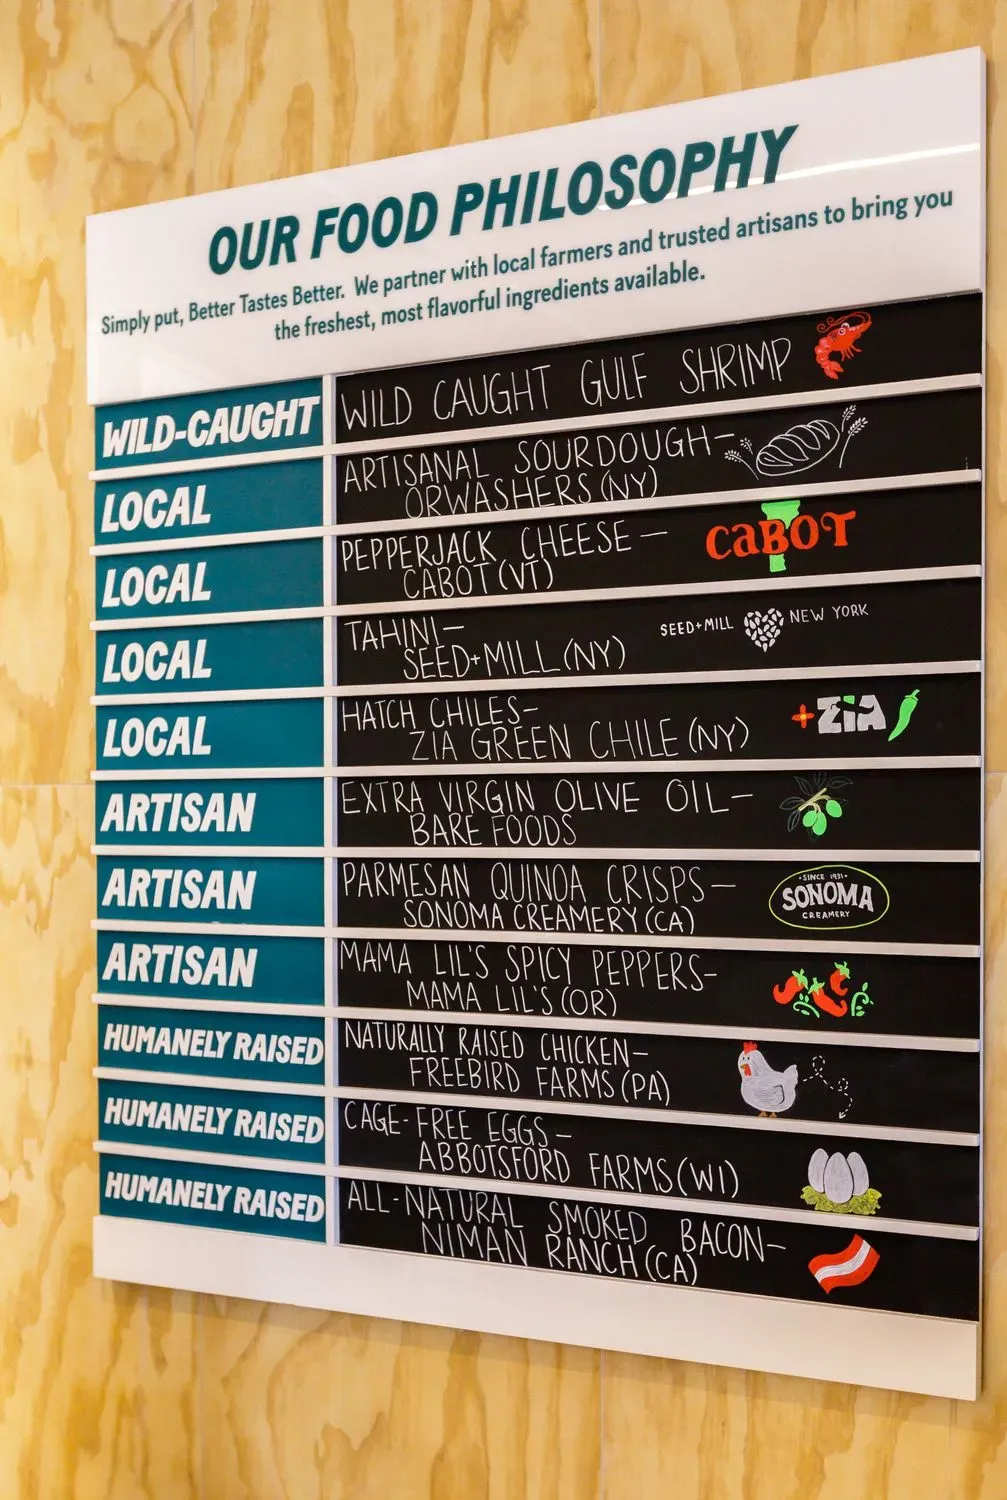 OUR FOOD PHILOSOPHY
Simply put, Better Tastes Better. We partner with local farmers and trusted artisans to bring you
the freshest, most flavorful ingredients available.
WILD-CAUGHT
WILD CAUGHT GULF SHRIMP
LOCAL
ARTISANAL SOURDOUGH-
ORWASHERS (NY)
LOCAL
PEPPERJACK CHEESE-
CABOT (VT)
CABOT
LOCAL
TAHINI-
SEED+MILL (NY)
SEED+MILL NEW YORK
LOCAL
HATCH CHILES-
ZIA GREEN CHILE (NY)
+ZIA
ARTISAN
EXTRA VIRGIN OLIVE OIL-
BARE FOODS
ARTISAN
PARMESAN QUINOA CRISPS-
SONOMA CREAMERY (CA)
·SINCE 1931·
SONOMA
CREAMERY
ARTISAN
MAMA LIL'S SPICY PEPPERS-
MAMA LIL'S (OR)
HUMANELY RAISED
NATURALLY RAISED CHICKEN-
FREEBIRD FARMS (PA)
HUMANELY RAISED
CAGE-FREE EGGS-
ABBOTSFORD FARMS (WI)
HUMANELY RAISED
ALL-NATURAL SMOKED BACON-
NIMAN RANCH (CA)